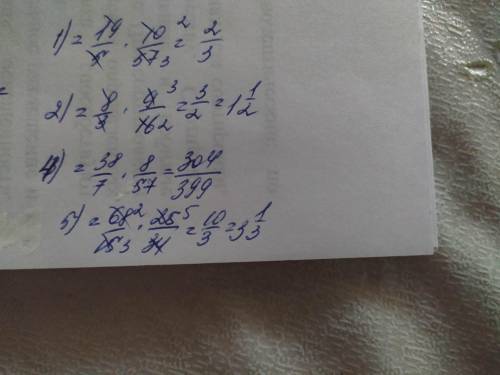 1) = 19/5 · 10/57 3 2 = 2/3
2) = 8/3 · 9/16 2 3 = 3/2 = 1 1/2
4) = 38/7 · 8/57 = 304/399
5) = 68/15 3 2 · 25/34 5 = 10/3 = 3 1/3